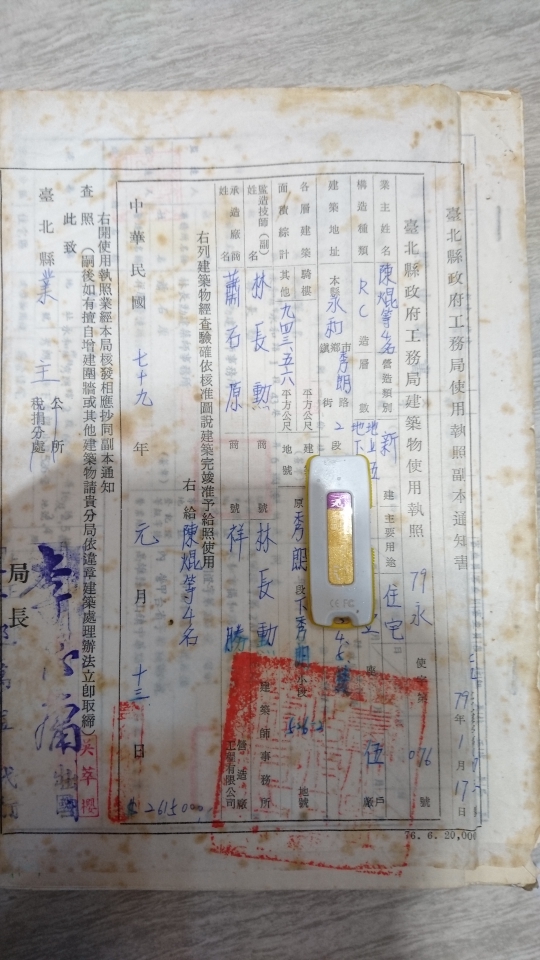 臺北縣政府工務局使用執照副本通知書
79年1月17日
臺北縣政府工務局建築物使用執照 79永使字第076號
業主姓名 陳焜等4名 營造類別 新建 主要用途 住宅
構造種類 RC 造層數 地上五 地下 伍戶
建築地址 本縣永和鎮鄉市秀朗路街2段
各層建築面積綜計 騎樓 平方公尺 建
其他 九四三.五六 平方公尺 地號 原秀朗段下秀朗小段 地號
監造技師(副)姓名 林長勳 商號 林長勳建築師事務所
承造廠商姓名 蕭石原 商號 祥勝營造廠工程有限公司
右列建築物經查驗確依核准圖說建築完竣准予給照使用
右給 陳焜等4名
中華民國七十九年元月十三日
右開使用執照業經本局核發相應抄同副本通知
查照(嗣後如有擅自增建圍牆或其他建築物請貴分局依違章建築處理辦法立即取締)
此致
臺北縣 業主 公所 稅捐分處
局長
76. 6. 20,00